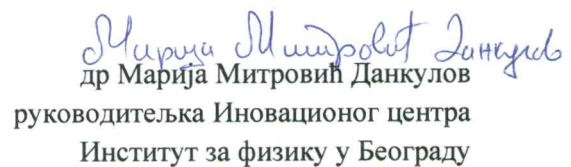 Марија Митровић Данкулов
др Марија Митровић Данкулов
руководитељка Иновационог центра
Институт за физику у Београду